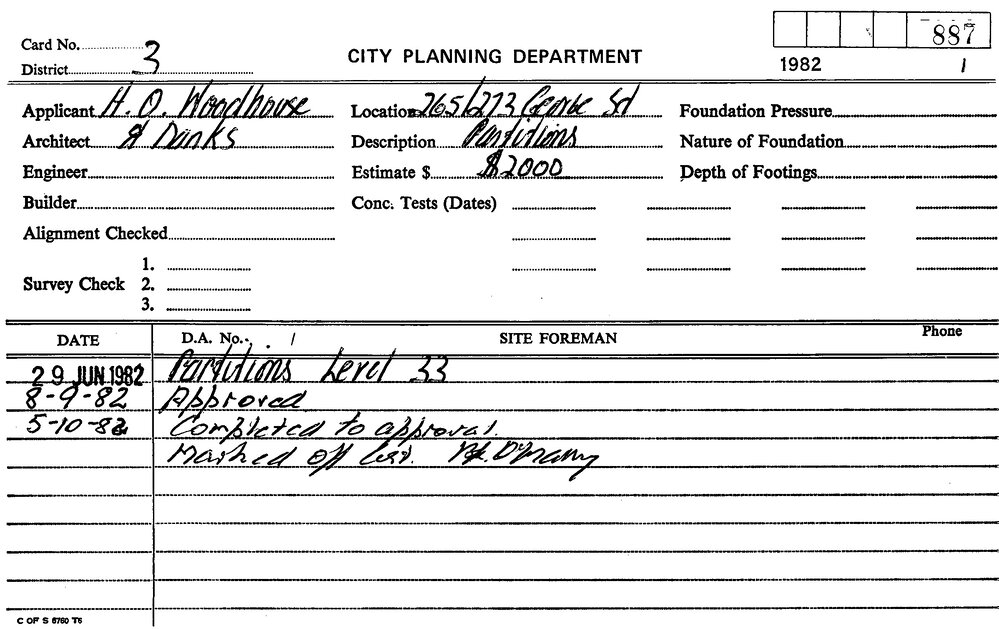 887
Card No. 3
District
CITY PLANNING DEPARTMENT
1982 1
Applicant H. O. Woodhouse Location 265/273 George St Foundation Pressure
Architect & Danks Description Partitions Nature of Foundation
Engineer Estimate $ $2000 Depth of Footings
Builder Conc. Tests (Dates)
Alignment Checked
1.
Survey Check 2.
3.
DATE D.A. No. / SITE FOREMAN Phone
29 JUN 1982 Partitions Level 33
8-9-82 Approved
5-10-82 Completed to approval.
Marked off
C OF S 6760 T6